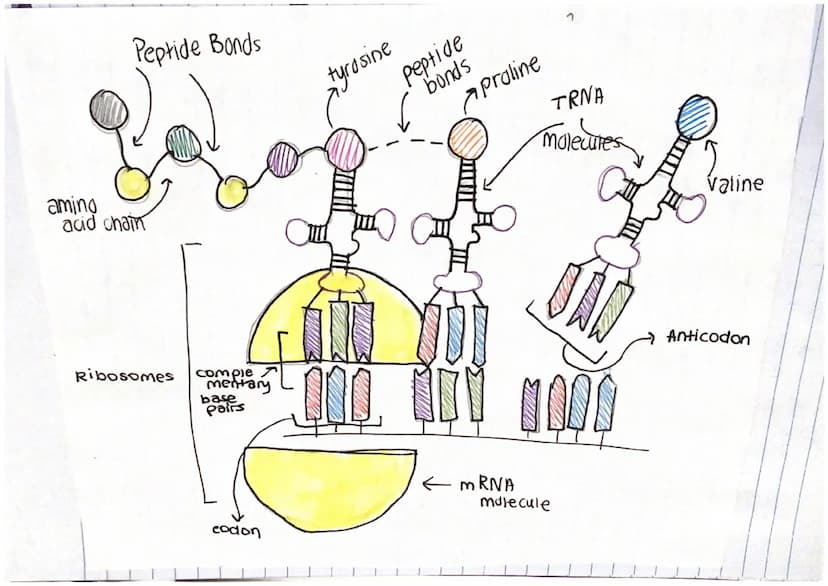 Peptide Bonds
tyrosine
peptide
bonds
proline
TRNA
molecules
Valine
amino
acid chain
Anticodon
Ribosomes
comple
mentary
base
pairs
mRNA
molecule
codon